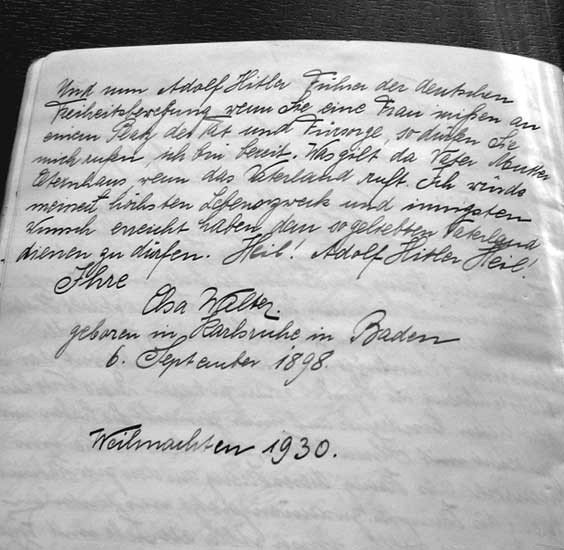 Und nun Adolf Hitler Führer der deutschen
Freiheitsbewegung wenn Sie eine Frau wissen an
einem der Tat und Fürsorge, so dürfen Sie
mich rufen, ich bin bereit. Was gilt da Vater Mutter
Elternhaus wenn das Vaterland ruft. Ich würde
meinen höchsten Lebenszweck und innigsten
Wunsch erreicht haben dem so geliebten Vaterland
dienen zu dürfen. Heil! Adolf Hitler Heil!
Ihre
Elsa Walter.
geboren in Karlsruhe in Baden
6. September 1898.
Weihnachten 1930.